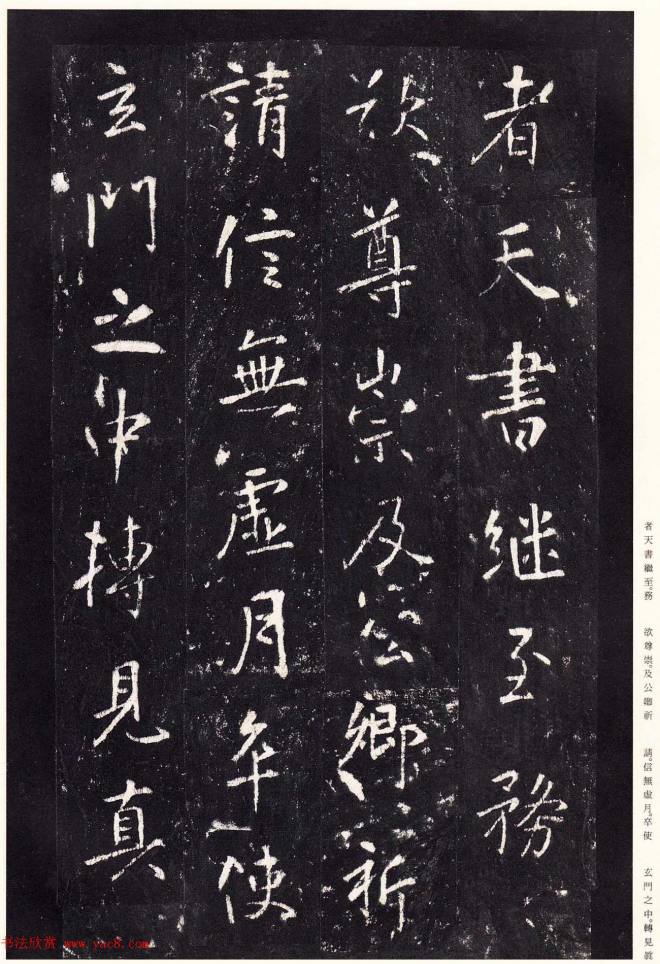 者天書継至務
欲尊崇及公卿祈
請信無虛月卒使
玄門之中轉見真
者天書繼至。務
欲尊崇。及公卿祈
請。信無虛月。卒使
玄門之中。轉見眞
书法欣赏 www.yac8.com